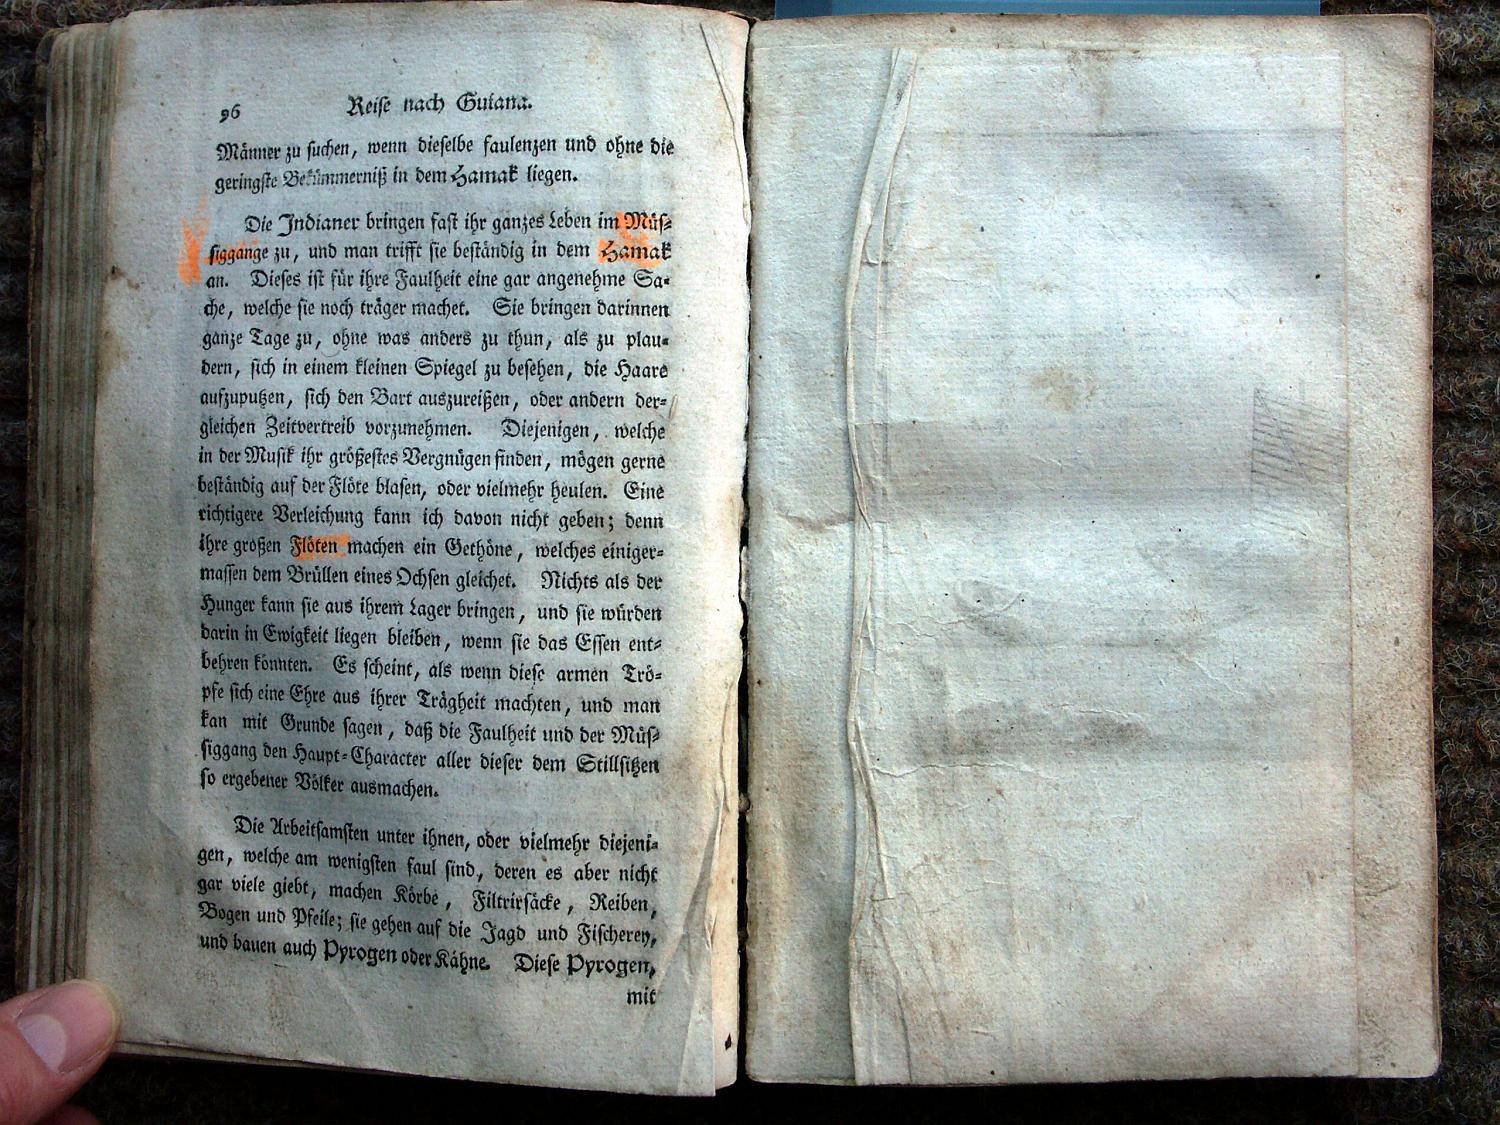 96 Reise nach Guiana.
Männer zu suchen, wenn dieselbe faulenzen und ohne die
geringste Bekümmerniß in dem Hamak liegen.
Die Indianer bringen fast ihr ganzes Leben im Müs-
siggange zu, und man trifft sie beständig in dem Hamak
an. Dieses ist für ihre Faulheit eine gar angenehme Sa-
che, welche sie noch träger machet. Sie bringen darinnen
ganze Tage zu, ohne was anders zu thun, als zu plau-
dern, sich in einem kleinen Spiegel zu besehen, die Haare
aufzuputzen, sich den Bart auszureißen, oder andern der-
gleichen Zeitvertreib vorzunehmen. Diejenigen, welche
in der Musik ihr größestes Vergnügen finden, mögen gerne
beständig auf der Flöte blasen, oder vielmehr heulen. Eine
richtigere Verleichung kann ich davon nicht geben; denn
ihre großen Flöten machen ein Gethöne, welches einiger-
massen dem Brüllen eines Ochsen gleichet. Nichts als der
Hunger kann sie aus ihrem Lager bringen, und sie würden
darin in Ewigkeit liegen bleiben, wenn sie das Essen ent-
behren könnten. Es scheint, als wenn diese armen Trö-
pfe sich eine Ehre aus ihrer Trägheit machten, und man
kan mit Grunde sagen, daß die Faulheit und der Müs-
siggang den Haupt-Character aller dieser dem Stillsitzen
so ergebener Völker ausmachen.
Die Arbeitsamsten unter ihnen, oder vielmehr diejeni-
gen, welche am wenigsten faul sind, deren es aber nicht
gar viele giebt, machen Körbe, Filtrirsäcke, Reiben,
Bogen und Pfeile; sie gehen auf die Jagd und Fischerey,
und bauen auch Pyrogen oder Kähne. Diese Pyrogen,
mit